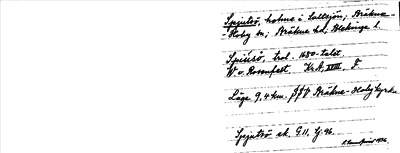 Spjutsö, holme i Saltsjön; Bräkne-
-Hoby sn; Bräkne hd, Blekinge l.
Spiutsö, trol. 1680-talet.
W. v. Rosenfelt. Kr.A. XVIII, F
Läge 9,4 km. SSV Bräkne-Hoby kyrka.
Spjutsö ek. G.11, Bj. 96.